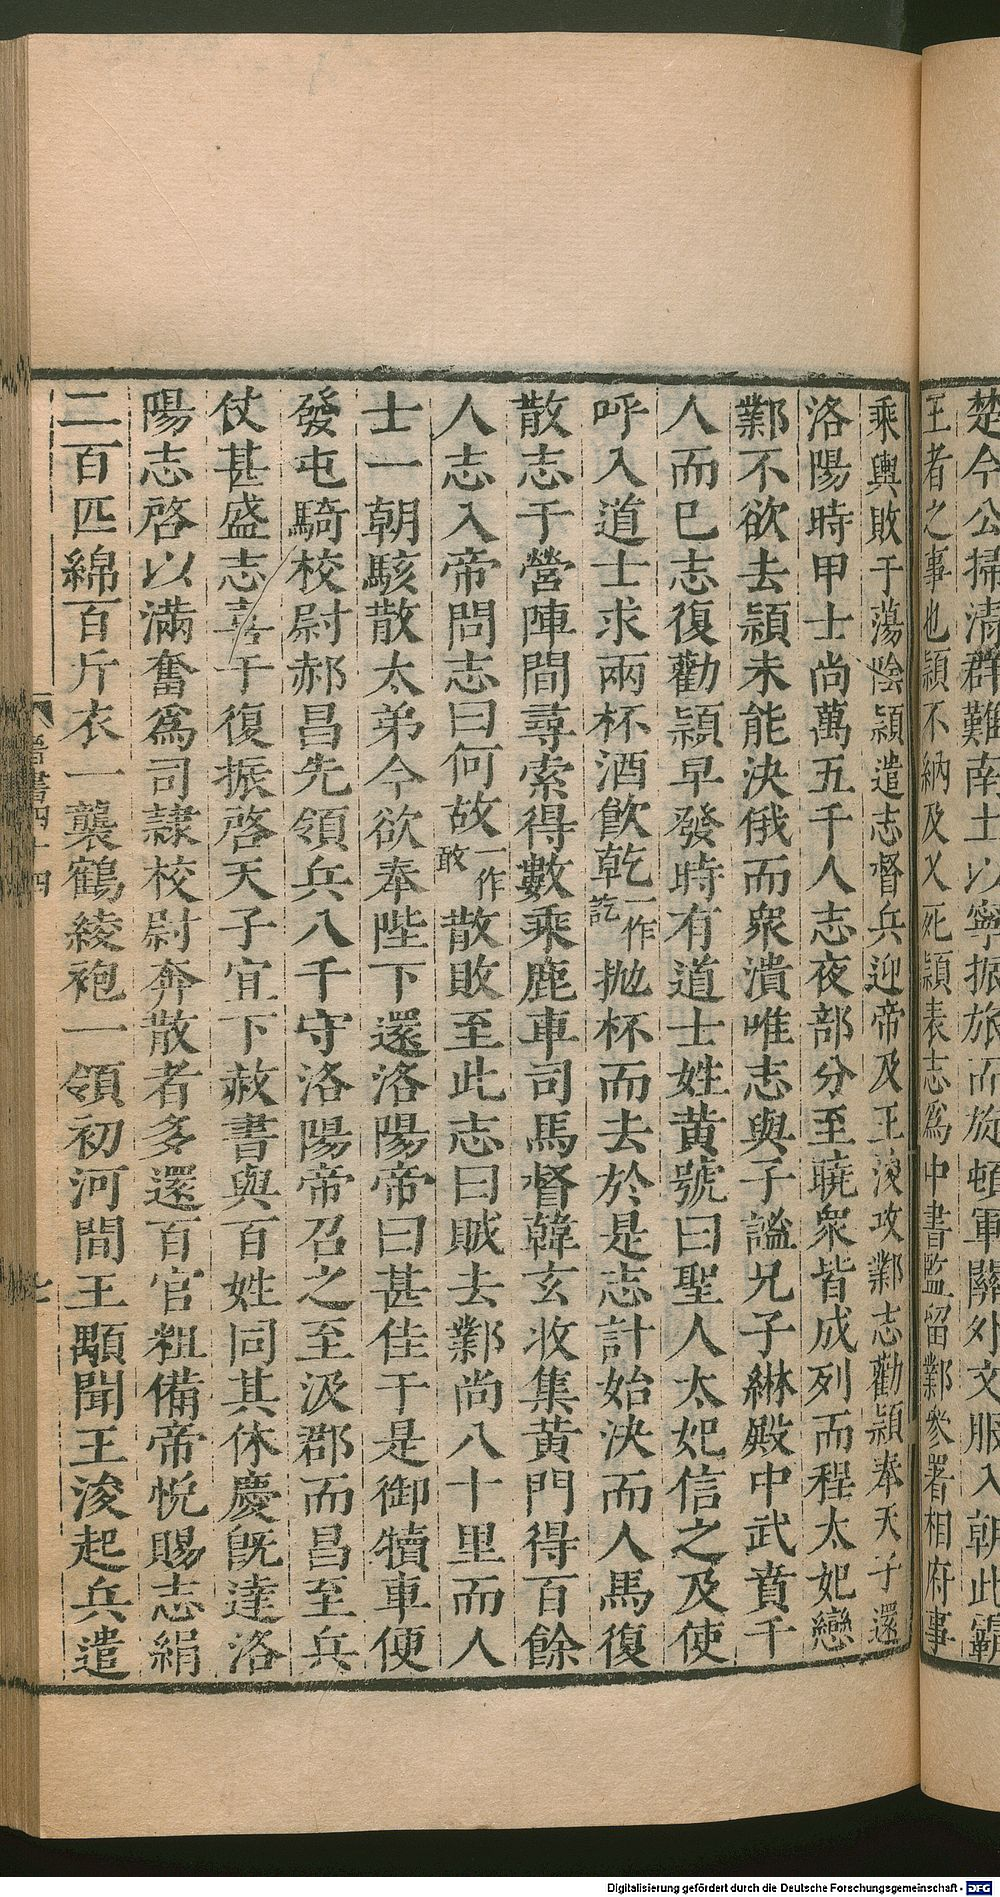 楚今公掃清群難南土以寧振旅而旋頓軍關外文服入朝此霸
王者之事也頴不納及乂死頴表志爲中書監留鄴參署相府事
乘輿敗于蕩陰頴遣志督兵迎帝及王浚攻鄴志勸頴奉天子還
洛陽時甲士尚萬五千人志夜部分至曉衆皆成列而程太妃戀
鄴不欲去頴未能決俄而衆潰唯志與子謐兄子綝殿中武賁千
人而已志復勸頴早發時有道士姓黄號曰聖人太妃信之及使
呼入道士求兩杯酒飮乾一作訖抛杯而去於是志計始決而人馬復
散志于營陣間尋索得數乘鹿車司馬督韓玄收集黄門得百餘
人志入帝問志曰何故一作敢散敗至此志曰賊去鄴尚八十里而人
士一朝駭散太弟今欲奉陛下還洛陽帝曰甚佳于是御犢車便
發屯騎校尉郝昌先領兵八千守洛陽帝召之至汲郡而昌至兵
仗甚盛志喜于復振啓天子宜下赦書與百姓同其休慶旣達洛
陽志啓以滿奮爲司隷校尉奔散者多還百官粗備帝悅賜志絹
二百匹綿百斤衣一襲鶴綾袍一領初河間王顒聞王浚起兵遣
晉書四十四
七
Digitalisierung gefördert durch die Deutsche Forschungsgemeinschaft - DFG